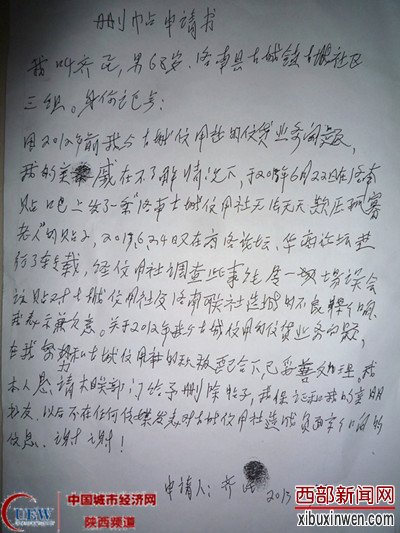 删帖申请书
我叫齐 ，男68岁，洛南县古城镇古城社区
三组。身份证号：
因2012年前我与古城信用社的信贷业务问题，
我的亲戚在不了解情况下，于2013年6月22日在洛南
贴吧上发了一条"洛南古城信用社无法无天 欺压 害
老人"的贴子，2013，6，24日又在商洛论坛、华商论坛进
行了转载，经信用社调查此事纯属一场误会
该贴对古城信用社及洛南联社造成的不良影响，
我表示歉意。关于2012年前古城信用的信贷业务问题，
在我 和古城信用社的积极配合下，已妥善处理。我
本人恳请相关部门给予删除帖子，我保证和我的亲朋
好友，以后不在任何传媒发表对古城信用社造成负面影响的
信息。谢谢！
申请人：齐
2013
UEW
中国城市经济网
陕西频道
西部新闻网
xibuxinwen.com